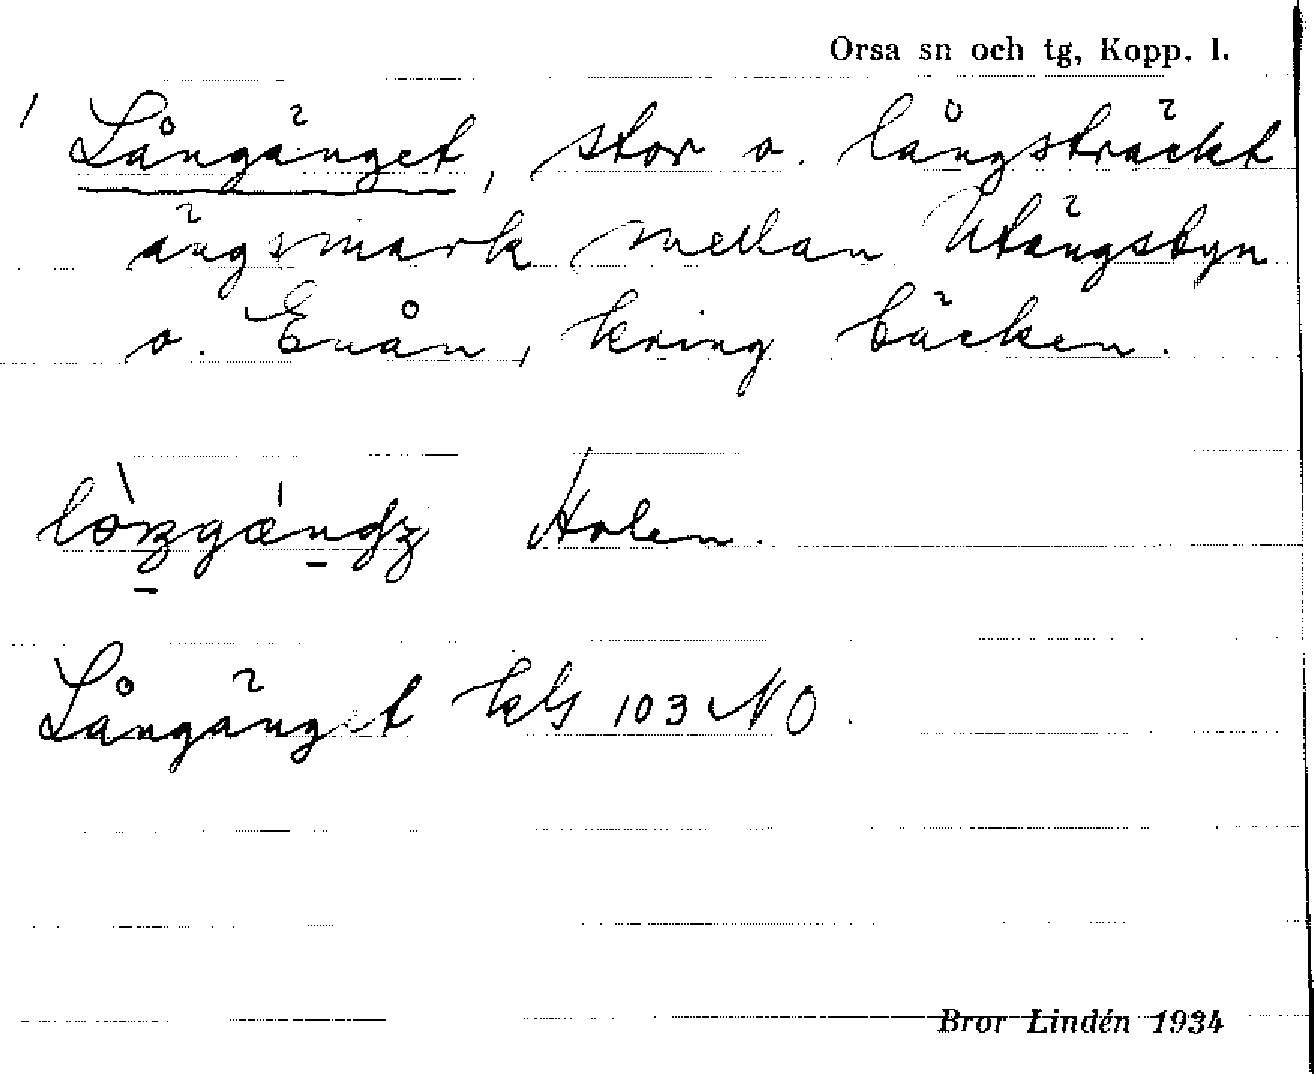 Orsa sn och tg, Kopp. l.
1 Långänget, stor o. långsträckt
ängsmark mellan Utängsbyn
o. Enån, kring bäcken.
Holen.
Långänget kbl 103 NO.
Bror Lindén 1934